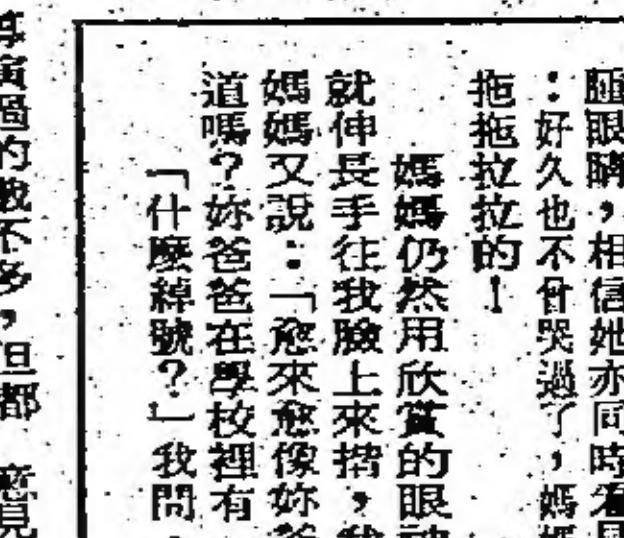 腫眼睛，相信她亦同時
：好久也不曾哭過了，媽
拖拖拉拉的！
媽媽仍然用欣賞的眼
就伸長手往我臉上來揩，我
媽媽又說：「愈來愈像妳爸
道嗎？妳爸爸在學校裡有
「什麼綽號？」我問
演過的戲不多，但都 意見